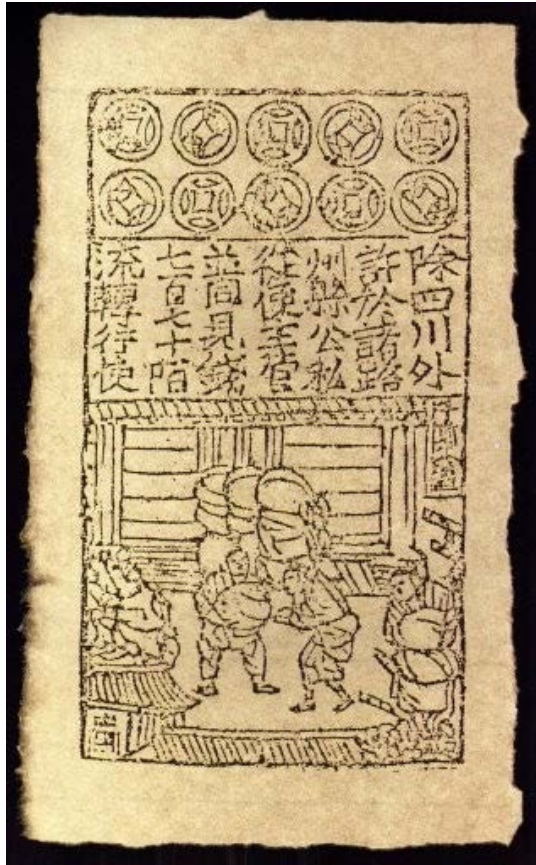 除四川外
許於諸路
州縣公私
從便主官
並同見錢
七百七十陌
流轉行使